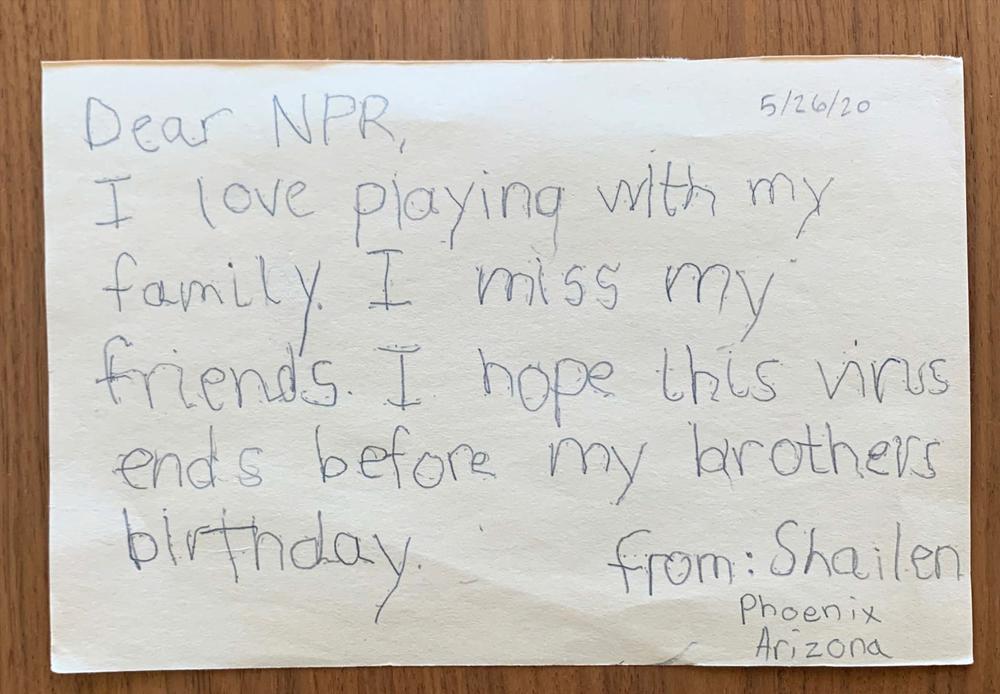 5/26/20
Dear NPR,
I love playing with my
family. I miss my
friends. I hope this virus
ends before my brothers
birthday.
from: Shailen
Phoenix
Arizona